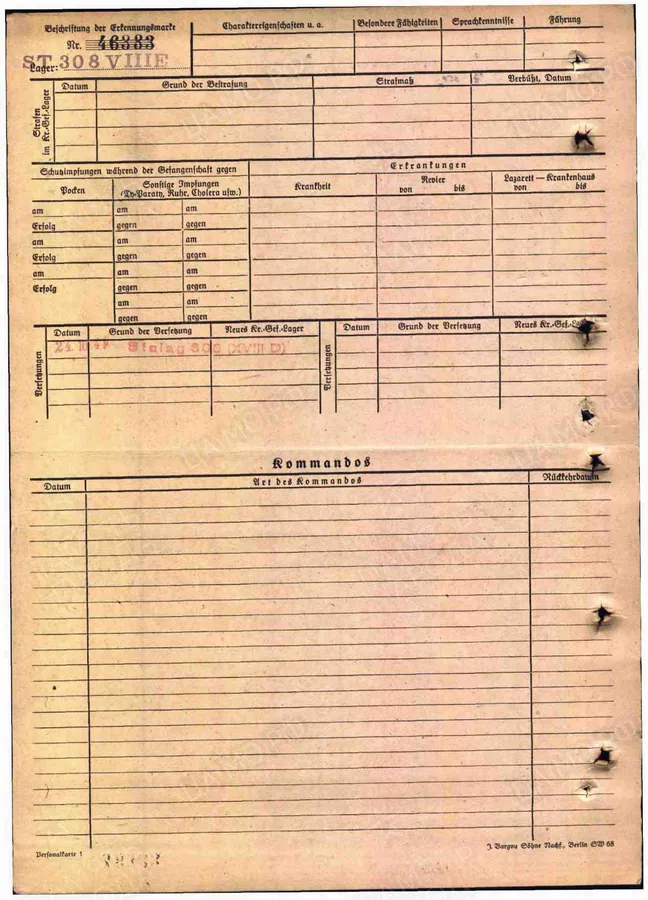 Beschriftung der Erkennungsmarke
Nr. 46383
ST 308 VIIIE
Lager:
Charaktereigenschaften u. a.
Besondere Fähigkeiten
Sprachkenntnisse
Führung
Strafen
im Kr.-Gef.-Lager
Datum
Grund der Bestrafung
Strafmaß
Verbüßt, Datum
Schutzimpfungen während der Gefangenschaft gegen
Erkrankungen
Pocken
Sonstige Impfungen
(Ty-Paraty, Ruhr, Cholera usw.)
Krankheit
Revier
von bis
Lazarett — Krankenhaus
von bis
am am am
Erfolg gegen gegen
am am am
Erfolg gegen gegen
am am am
Erfolg gegen gegen
am am
gegen gegen
Versetzungen
Datum
Grund der Versetzung
Neues Kr.-Gef.-Lager
Versetzungen
Datum
Grund der Versetzung
Neues Kr.-Gef.-Lager
Stalag (XVIII D)
Kommandos
Datum
Art des Kommandos
Rückkehrdatum
Personalkarte 1
J. Bargou Söhne Nachf., Berlin SW 68